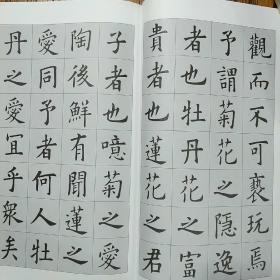 觀而不可褻玩焉
予謂菊花之隱逸
者也牡丹花之富
貴者也蓮花之君
子者也噫菊之愛
陶後鮮有聞蓮之
愛同予者何人牡
丹之愛冝乎衆矣